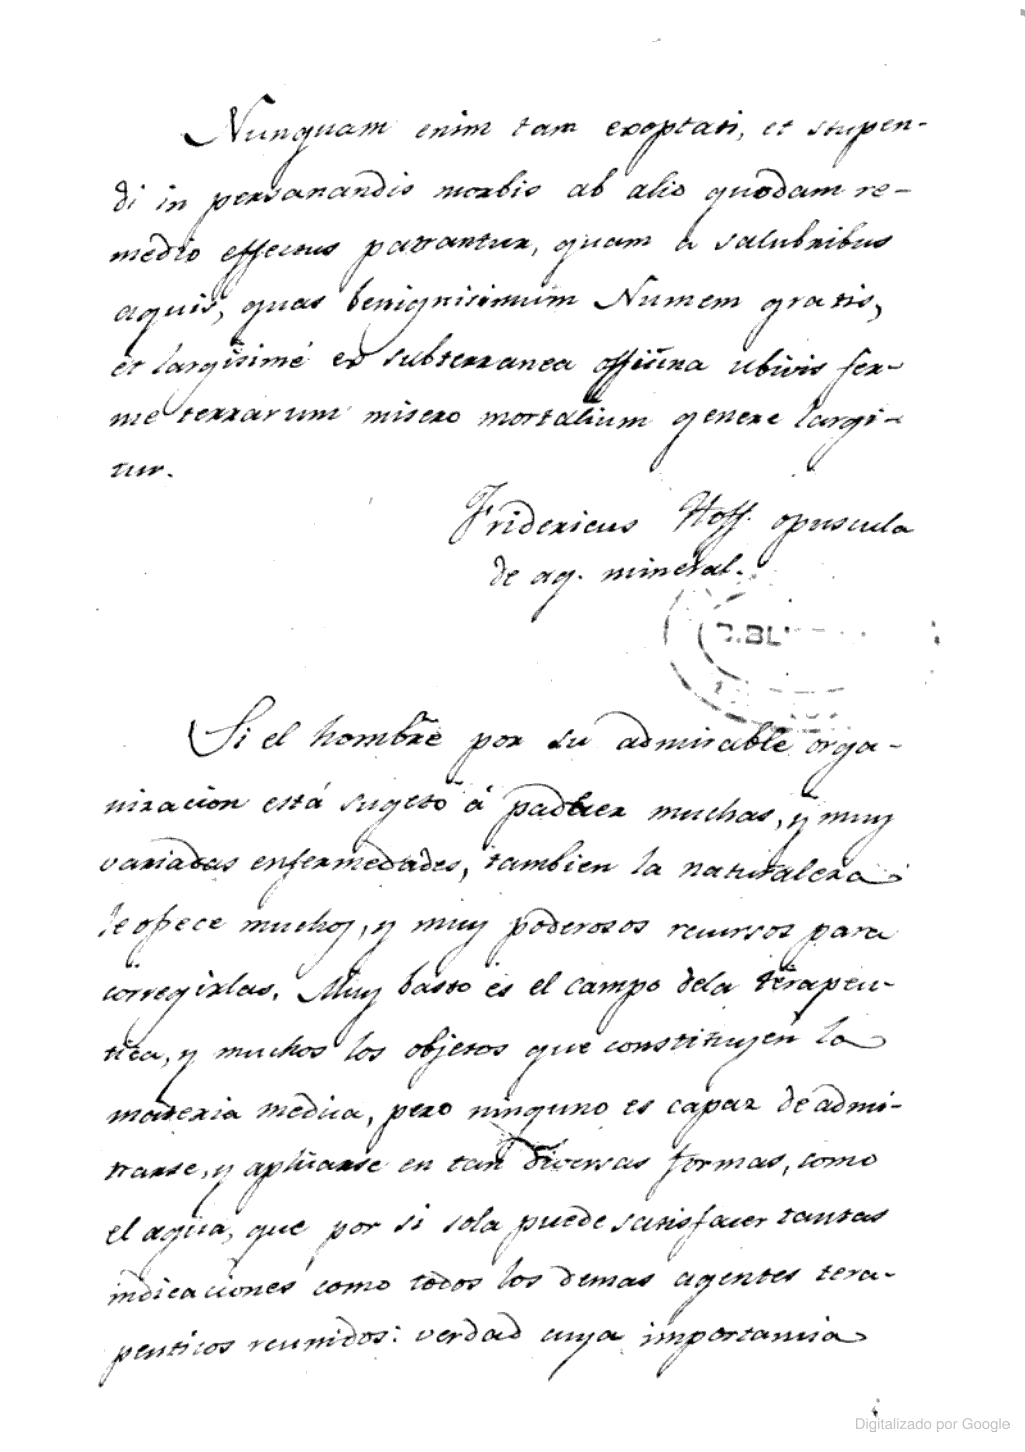 Nunquam enim tam exoptati, et stupen-
di in persanandis morbis ab alio quodam re-
medio effectus patrantur, quam a salubribus
aquis, quas benignisimum Numen gratis,
et largisimé ex subterranea officina ubivis fer-
me terrarum misero mortalium genere largi-
tur.
Fridericus Hoff. opuscula
de aq. mineral.
Si el hombre por su admirable orga-
nizacion está sugeto á padecer muchas, y muy
variadas enfermedades, tambien la naturaleza
le ofrece muchos, y muy poderosos recursos para
corregirlas. Muy basto es el campo dela terapeu-
tica, y muchos los objetos que constituyen la
materia medica, pero ninguno es capaz de admi-
trarse, y aplicarse en tan diversas formas, como
el agua, que por si sola puede satisfacer tantas
indicaciones como todos los demas agentes tera-
peuticos reunidos: verdad cuya importancia
Digitalizado por Google